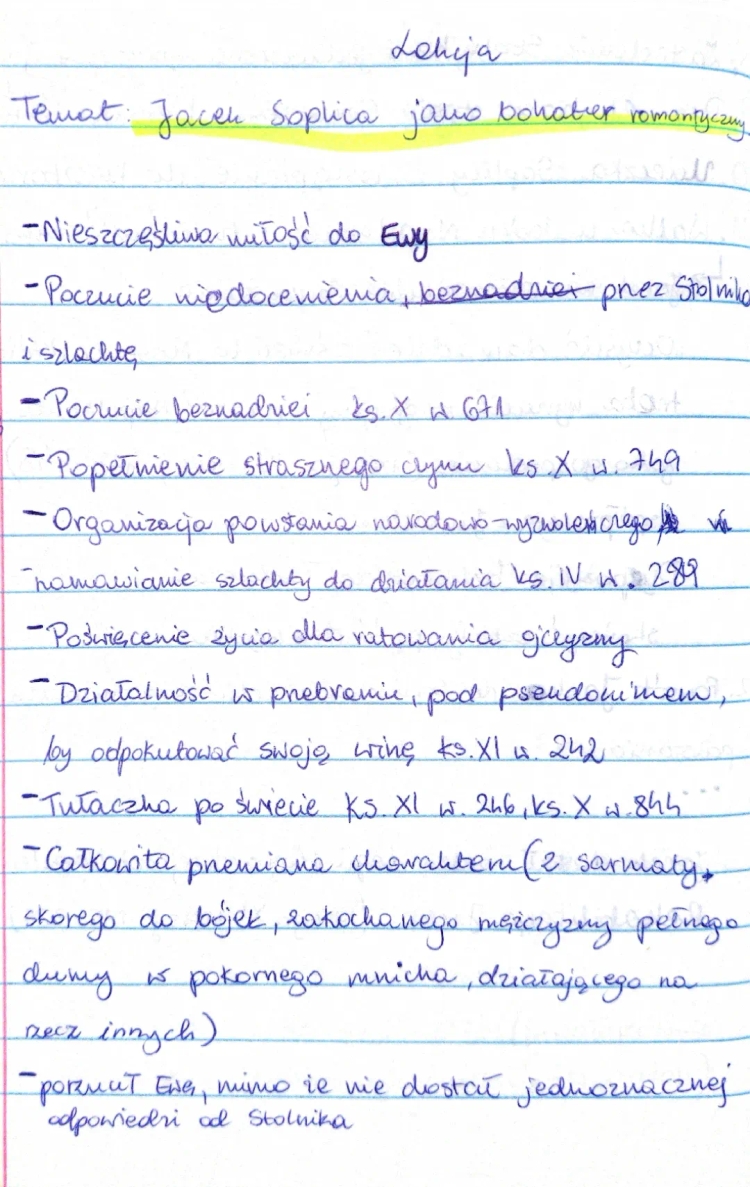 Lekcja
Temat: Jacek Soplica jako bohater romantyczny
- Nieszczęśliwa miłość do Ewy
- Poczucie niedocenienia, beznadziei przez Stolnika
i szlachtę
- Poczucie beznadziei ks. X w 671
- Popełnienie strasznego czynu ks X w. 749
- Organizacja powstania narodowo-wyzwoleńczego
- namawianie szlachty do działania ks. IV w. 289
- Poświęcenie życia dla ratowania ojczyzny
- Działalność w przebraniu, pod pseudonimem,
by odpokutować swoją winę ks. XI w. 242
- Tułaczka po świecie ks. XI w. 246, ks. X w. 844
- Całkowita przemiana charakteru (z sarmaty,
skorego do bójek, zakochanego mężczyzny pełnego
dumy w pokornego mnicha, działającego na
rzecz innych)
- porzucił Ewę, mimo że nie dostał jednoznacznej
odpowiedzi od Stolnika